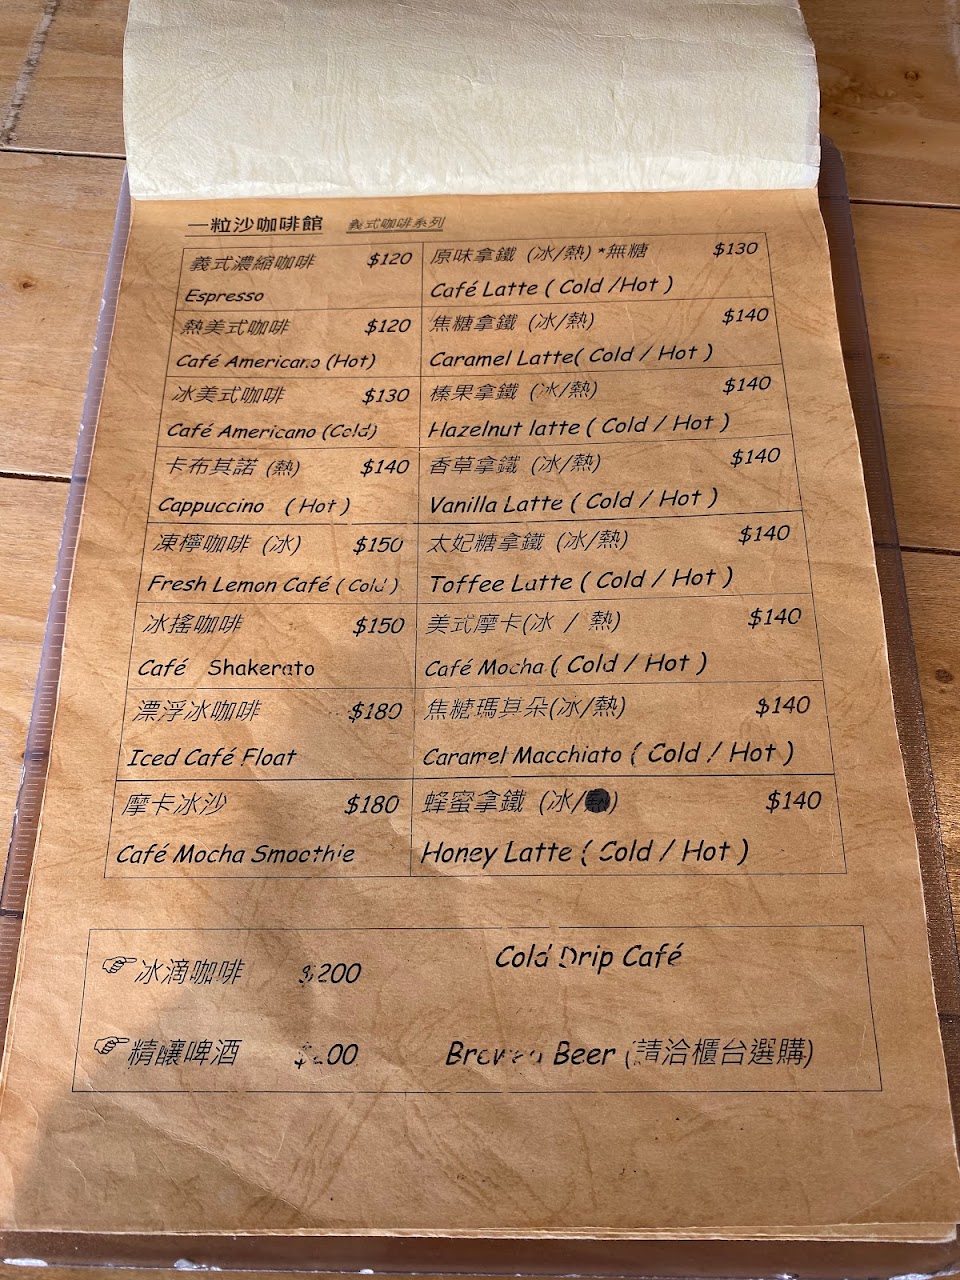 一粒沙咖啡館 義式咖啡系列
義式濃縮咖啡 $120
Espresso
熱美式咖啡 $120
Café Americano (Hot)
冰美式咖啡 $130
Café Americano (Cold)
卡布其諾 (熱) $140
Cappuccino ( Hot )
凍檸咖啡 (冰) $150
Fresh Lemon Café ( Cold )
冰搖咖啡 $150
Café Shakerato
漂浮冰咖啡 $180
Iced Café Float
摩卡冰沙 $180
Café Mocha Smoothie
原味拿鐵 (冰/熱) *無糖 $130
Café Latte ( Cold /Hot )
焦糖拿鐵 (冰/熱) $140
Caramel Latte( Cold / Hot )
榛果拿鐵 (冰/熱) $140
Hazelnut latte ( Cold / Hot )
香草拿鐵 (冰/熱) $140
Vanilla Latte ( Cold / Hot )
太妃糖拿鐵 (冰/熱) $140
Toffee Latte ( Cold / Hot )
美式摩卡(冰 / 熱) $140
Café Mocha ( Cold / Hot )
焦糖瑪其朵(冰/熱) $140
Caramel Macchiato ( Cold / Hot )
蜂蜜拿鐵 (冰/熱) $140
Honey Latte ( Cold / Hot )
冰滴咖啡 $200 Cold Drip Café
精釀啤酒 Brewed Beer (請洽櫃台選購)